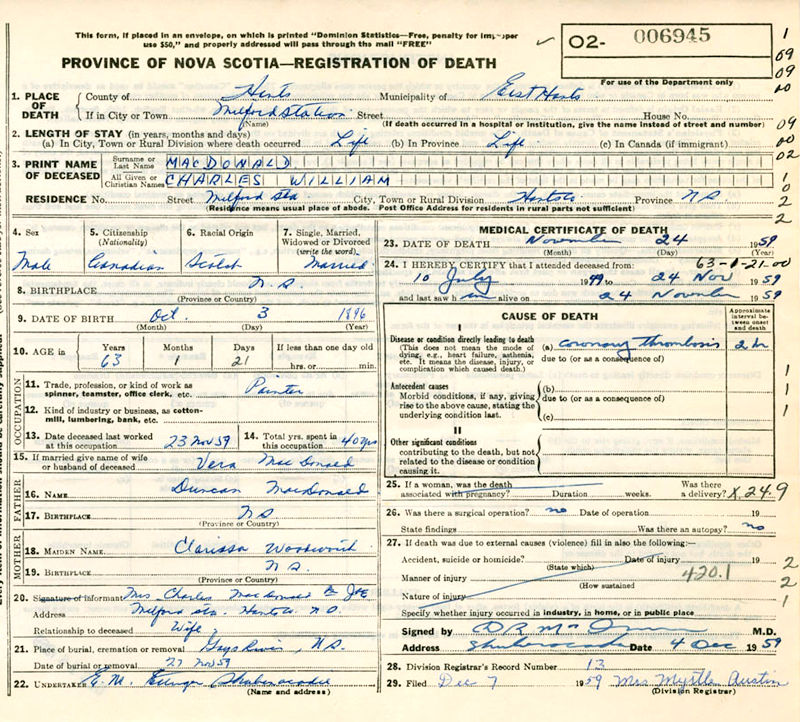 This form, if placed in an envelope, on which is printed "Dominion Statistics—Free, penalty for improper
use $50," and properly addressed will pass through the mail "FREE"
O2- 006945
For use of the Department only
PROVINCE OF NOVA SCOTIA—REGISTRATION OF DEATH
1. PLACE OF DEATH
County of Hants Municipality of East Hants
If in City or Town Milford Station Street House No.
(Name) (If death occurred in a hospital or institution, give the name instead of street and number)
2. LENGTH OF STAY (in years, months and days)
(a) In City, Town or Rural Division where death occurred Life (b) In Province Life (c) In Canada (if immigrant)
3. PRINT NAME OF DECEASED
Surname or Last Name MACDONALD
All Given or Christian Names CHARLES WILLIAM
RESIDENCE No. Street Milford Sta. City, Town or Rural Division Hants Co Province N S
(Residence means usual place of abode. Post Office Address for residents in rural parts not sufficient)
4. Sex
Male
5. Citizenship
(Nationality)
Canadian
6. Racial Origin
Scotch
7. Single, Married, Widowed or Divorced
(write the word)
Married
8. BIRTHPLACE N.S.
(Province or Country)
9. DATE OF BIRTH Oct. 3 1896
(Month) (Day) (Year)
10. AGE in
Years Months Days If less than one day old
63 1 21 hrs. or min.
OCCUPATION
11. Trade, profession, or kind of work as spinner, teamster, office clerk, etc. Painter
12. Kind of industry or business, as cotton-mill, lumbering, bank, etc.
13. Date deceased last worked at this occupation 23 Nov 59
14. Total yrs. spent in this occupation 40 yrs
15. If married give name of wife or husband of deceased Vera MacDonald
FATHER
16. NAME Duncan MacDonald
17. BIRTHPLACE N S
(Province or Country)
MOTHER
18. MAIDEN NAME Clarissa Woodworth
19. BIRTHPLACE N.S.
(Province or Country)
20. Signature of informant Mrs Charles MacDonald
Address Milford Sta.
Relationship to deceased Wife
21. Place of burial, cremation or removal Gays River, N.S.
Date of burial or removal 27 Nov 59
22. UNDERTAKER E. M. Ettinger Shubenacadie
(Name and address)
MEDICAL CERTIFICATE OF DEATH
23. DATE OF DEATH November 24 1959
(Month) (Day)
63-1-21-00
24. I HEREBY CERTIFY that I attended deceased from:
10 July 19 to 24 Nov 1959
and last saw him alive on 24 November 1959
CAUSE OF DEATH
Approximate interval between onset and death
I
Disease or condition directly leading to death
(This does not mean the mode of dying, e.g., heart failure, asthenia, etc. It means the disease, injury, or complication which caused death.)
(a) coronary thrombosis 2 hr
due to (or as a consequence of)
Antecedent causes
Morbid conditions, if any, giving rise to the above cause, stating the underlying condition last.
(b)
due to (or as a consequence of)
(c)
II
Other significant conditions
contributing to the death, but not related to the disease or condition causing it.
25. If a woman, was the death associated with pregnancy? Duration weeks. Was there a delivery? X 24.9
26. Was there a surgical operation? no Date of operation 19
State findings Was there an autopsy? no
27. If death was due to external causes (violence) fill in also the following:—
Accident, suicide or homicide? Date of injury 19
(State which)
Manner of injury 420.1
(How sustained)
Nature of injury
Specify whether injury occurred in industry, in home, or in public place
Signed by M.D.
Address Shubenacadie Date 4 Dec 1959
28. Division Registrar's Record Number 13
29. Filed Dec 7 1959 Mrs Myrtle Austin
(Division Registrar)
1
09
09
00
09
00
02
1
0
2
2
1
1
1
2
2
1